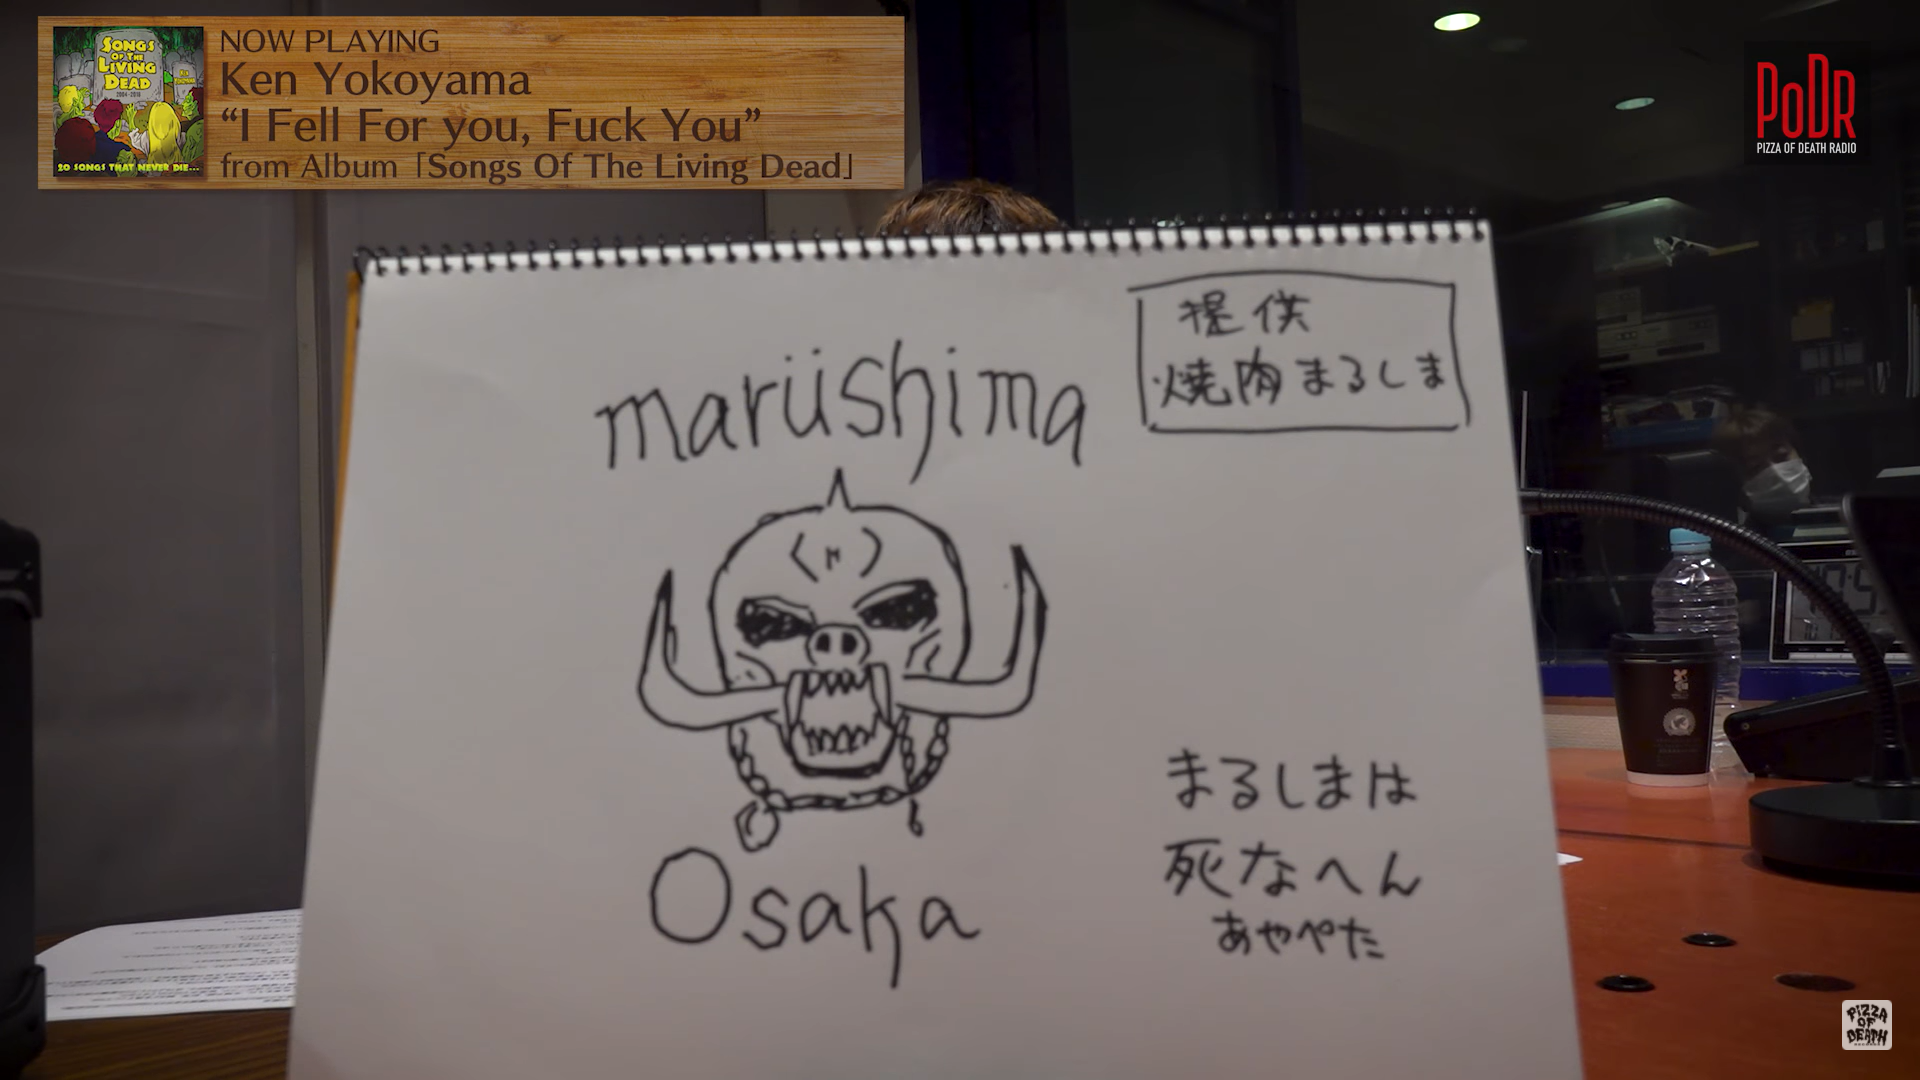 NOW PLAYING
Ken Yokoyama
“I Fell For you, Fuck You”
from Album「Songs Of The Living Dead」
SONGS
OF THE
LIVING
DEAD
2004-2018
KEN YOKOYAMA
20 SONGS THAT NEVER DIE...
PODR
PIZZA OF DEATH RADIO
提供
焼肉まるしま
marüshima
Osaka
まるしまは
死なへん
あやぺた
PIZZA
OF
DEATH